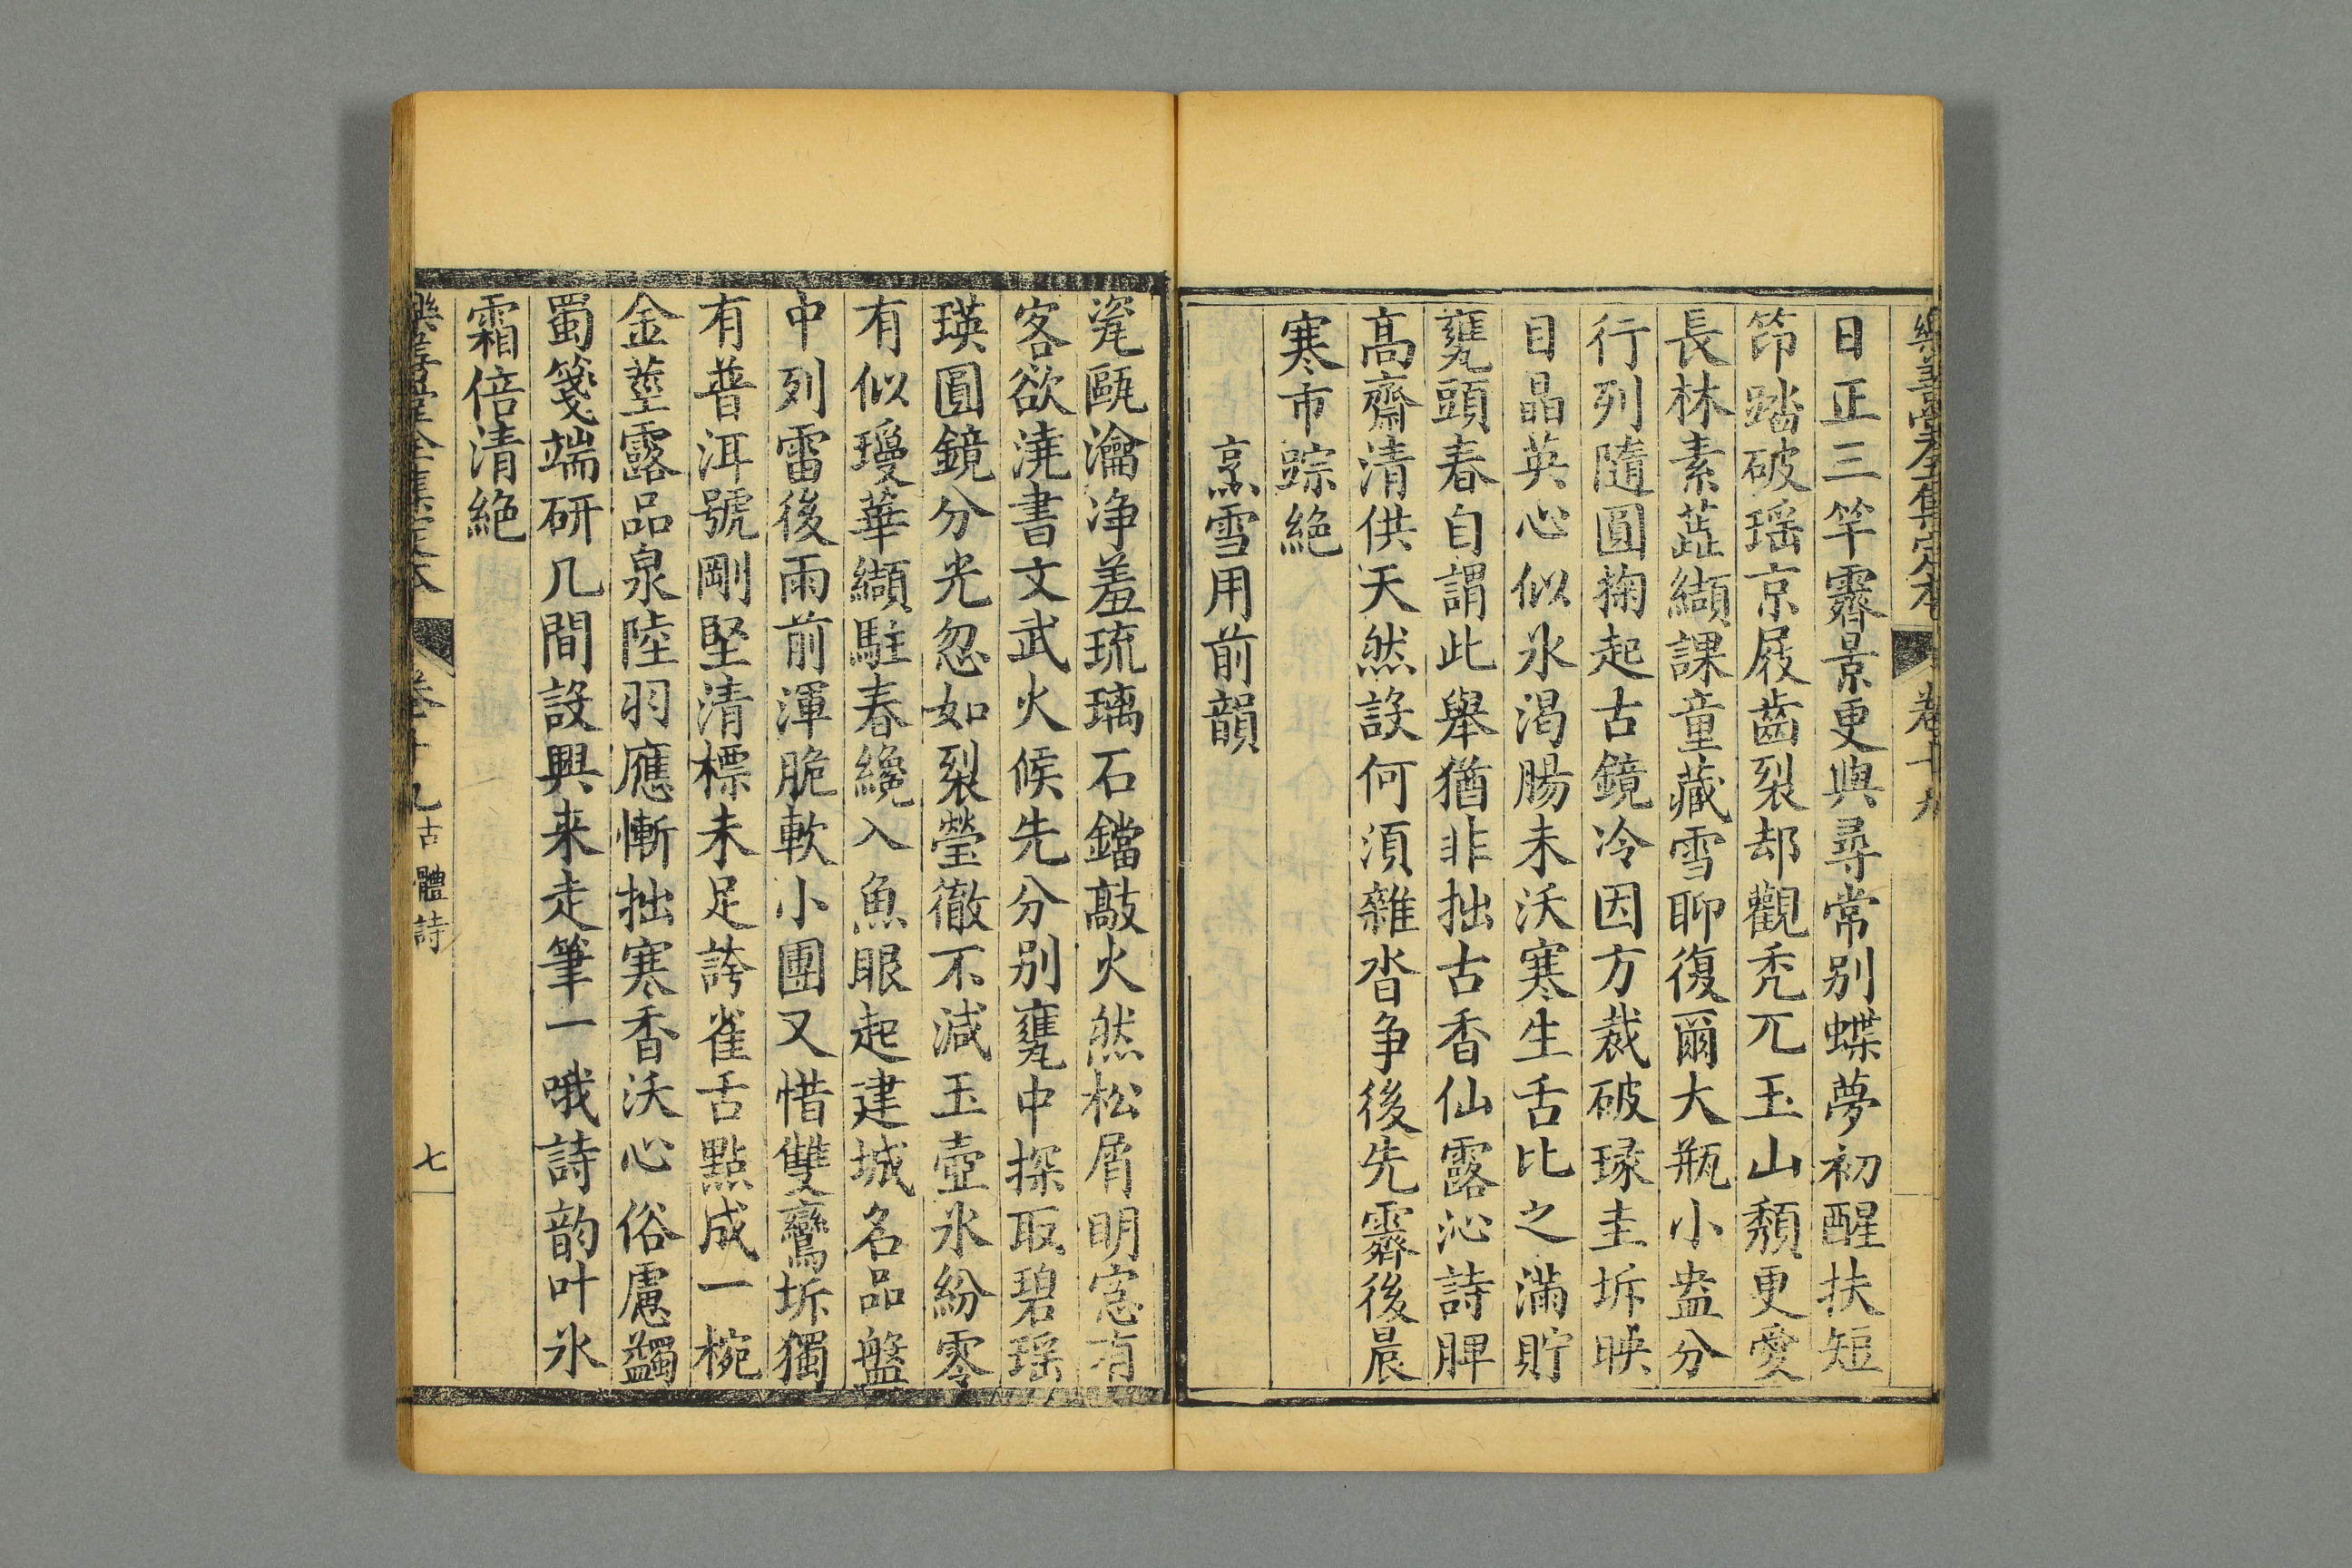 樂善堂全集定本 卷十九
日正三竿霽景更與尋常别蝶夢初醒扶短
筇踏破瑶京屐齒裂却觀禿兀玉山頽更愛
長林素蕋纈課童藏雪聊復爾大瓶小盎分
行列隨圓掬起古鏡冷因方裁破琭圭坼映
目晶英心似氷渴腸未沃寒生舌比之滿貯
甕頭春自謂此舉猶非拙古香仙露沁詩脾
高齋清供天然設何須雜沓争後先霽後晨
寒市踪絶
烹雪用前韻
瓷甌瀹净羞琉璃石鐺敲火然松屑明窓有
客欲澆書文武火候先分别甕中探取碧瑶
瑛圓鏡分光忽如裂瑩徹不減玉壺氷紛零
有似瓊華纈駐春纔入魚眼起建城名品盤
中列雷後雨前渾脆軟小團又惜雙鸞坼獨
有普洱號剛堅清標未足誇雀舌點成一椀
金莖露品泉陸羽應慚拙寒香沃心俗慮蠲
蜀箋端研几間設興来走筆一哦詩韵叶氷
霜倍清絶
樂善堂全集定本 卷十九 古體詩 七